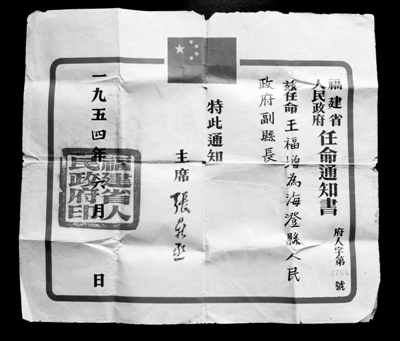 福建省
人民政府
任命通知書
府人字第號
茲任命王福增為海澄縣人民
政府副縣長
特此通知
主席 張鼎丞
一九五四年六月 日
福建省人
民政府印